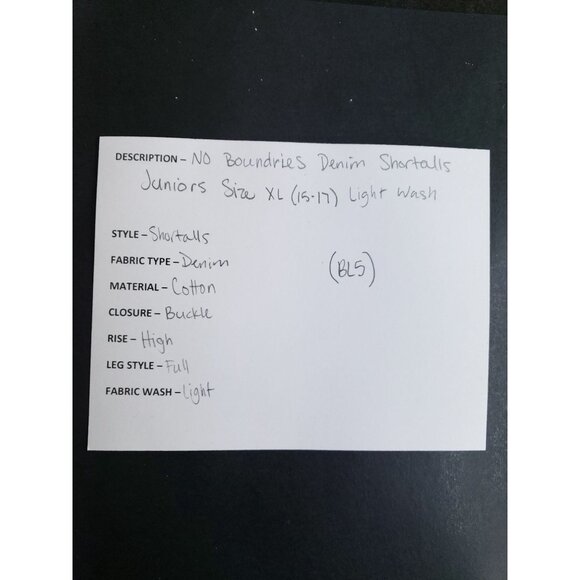 DESCRIPTION – NO Boundries Denim Shortalls
Juniors Size XL (15-17) Light Wash
STYLE – Shortalls
FABRIC TYPE – Denim
(BL5)
MATERIAL – Cotton
CLOSURE – Buckle
RISE – High
LEG STYLE – Full
FABRIC WASH – Light